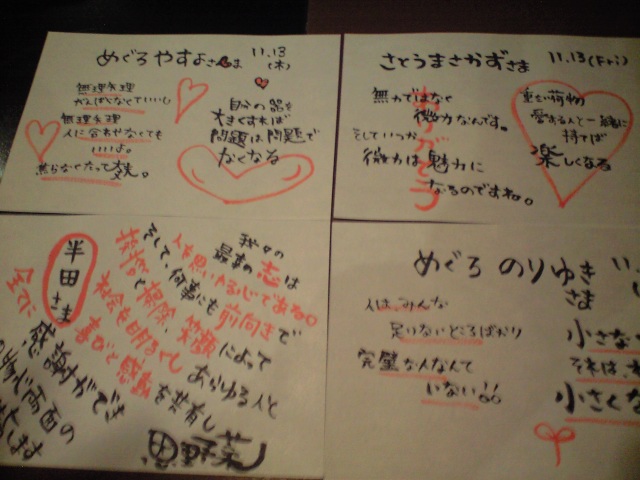 めぐろ やすよさま
11.13
(木)
無理矢理
がんばらなくていいし
無理矢理
人に合わせなくても
いいよ。
焦らなくたって大丈夫。
自分の器を
大きくすれば
問題は問題で
なくなる
さとうまさかずさま
11.13(Fri)
無力ではなく
微力なんです。
そしていつか
微力は魅力に
なるのですね。
ありがとう
重たい荷物
愛する人と一緒に
持てば
楽しくなる
半田さま
我々の
最高の志は
人を思いやる心である。
そして、何事にも前向きで
挨拶と掃除、笑顔によって
社会を明るくし あらゆる人と
喜びと感動を共有し
全てに
感謝ができ
両面の
めぐろ のりゆき
さま
人は、みんな
足りないところばかり
完璧な人なんて
いない!!
小さな
それは、
小さくな